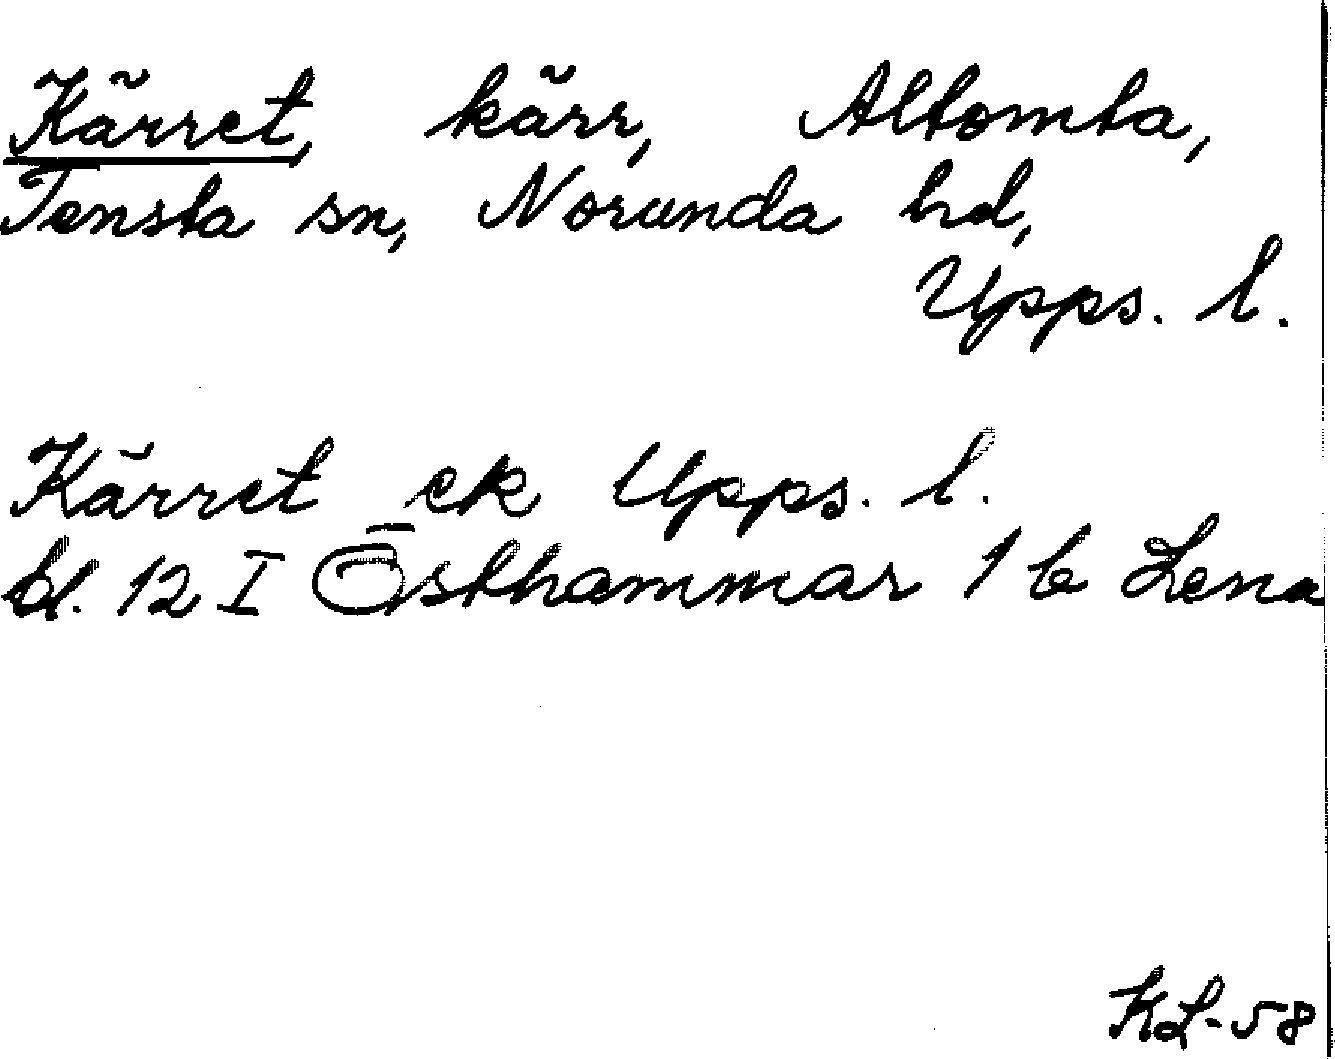 Kärret, kärr, Altomta,
Tensta sn, Norunda hd,
Upps. l.
Kärret ek Upps. l.
bl. 12 I Östhammar 1 b Lena
KL-58